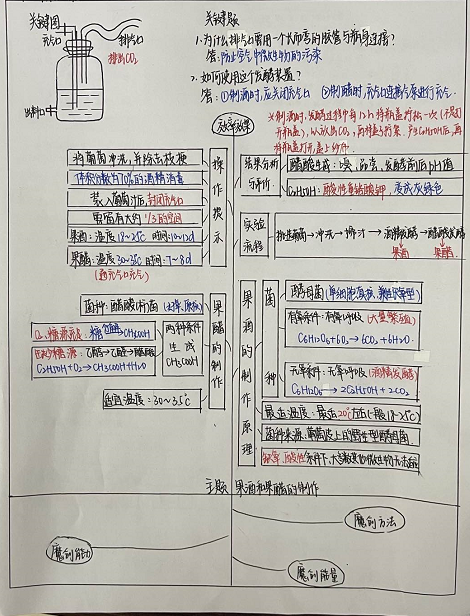 关键图
充气口
排气口
排出CO₂
出料口
关键题
1.为什么排气口要用一个长而弯的胶管与瓶身连接?
答:防止空气中微生物的污染
2.如何使用这个发酵装置?
答:①制酒时,应关闭充气口 ②制醋时,充气口连接气泵进行充气.
将葡萄冲洗,并除去枝梗
体积分数为70%的酒精消毒
装入葡萄汁后,封闭充气口
要留有大约1/3的空间
果酒:温度18~25℃ 时间:10~12d
果醋:温度30~35℃ 时间:7~8d
(适时充气口充气)
操作提示
结果分析与评价
醋酸生成:
C₂H₅OH:酸性重铬酸钾 变成灰绿色
实验流程
挑选葡萄→冲洗→榨汁→酒精发酵→醋酸发酵
果酒
果醋
菌种:醋酸(杆)菌
O₂、糖源充足:糖→CH₃COOH
缺少糖源:乙醇→乙醛→醋酸
C₂H₅OH+O₂→CH₃COOH+H₂O
两种条件生成CH₃COOH
适宜温度:30~35℃
果醋的制作
果酒的制作原理
菌种
酵母菌
有氧条件:有氧呼吸(大量繁殖)
C₆H₁₂O₆+6O₂→6CO₂+6H₂O
无氧条件:无氧呼吸(酒精发酵)
C₆H₁₂O₆→2C₂H₅OH+2CO₂
最适温度:最适20℃左右(一般18~25℃)
菌种来源:葡萄皮上的野生型酵母菌
缺氧、酸性条件下,大多数其他微生物无法适应
主题 果酒和果醋的制作
魔创方法
魔创能力
魔创能量